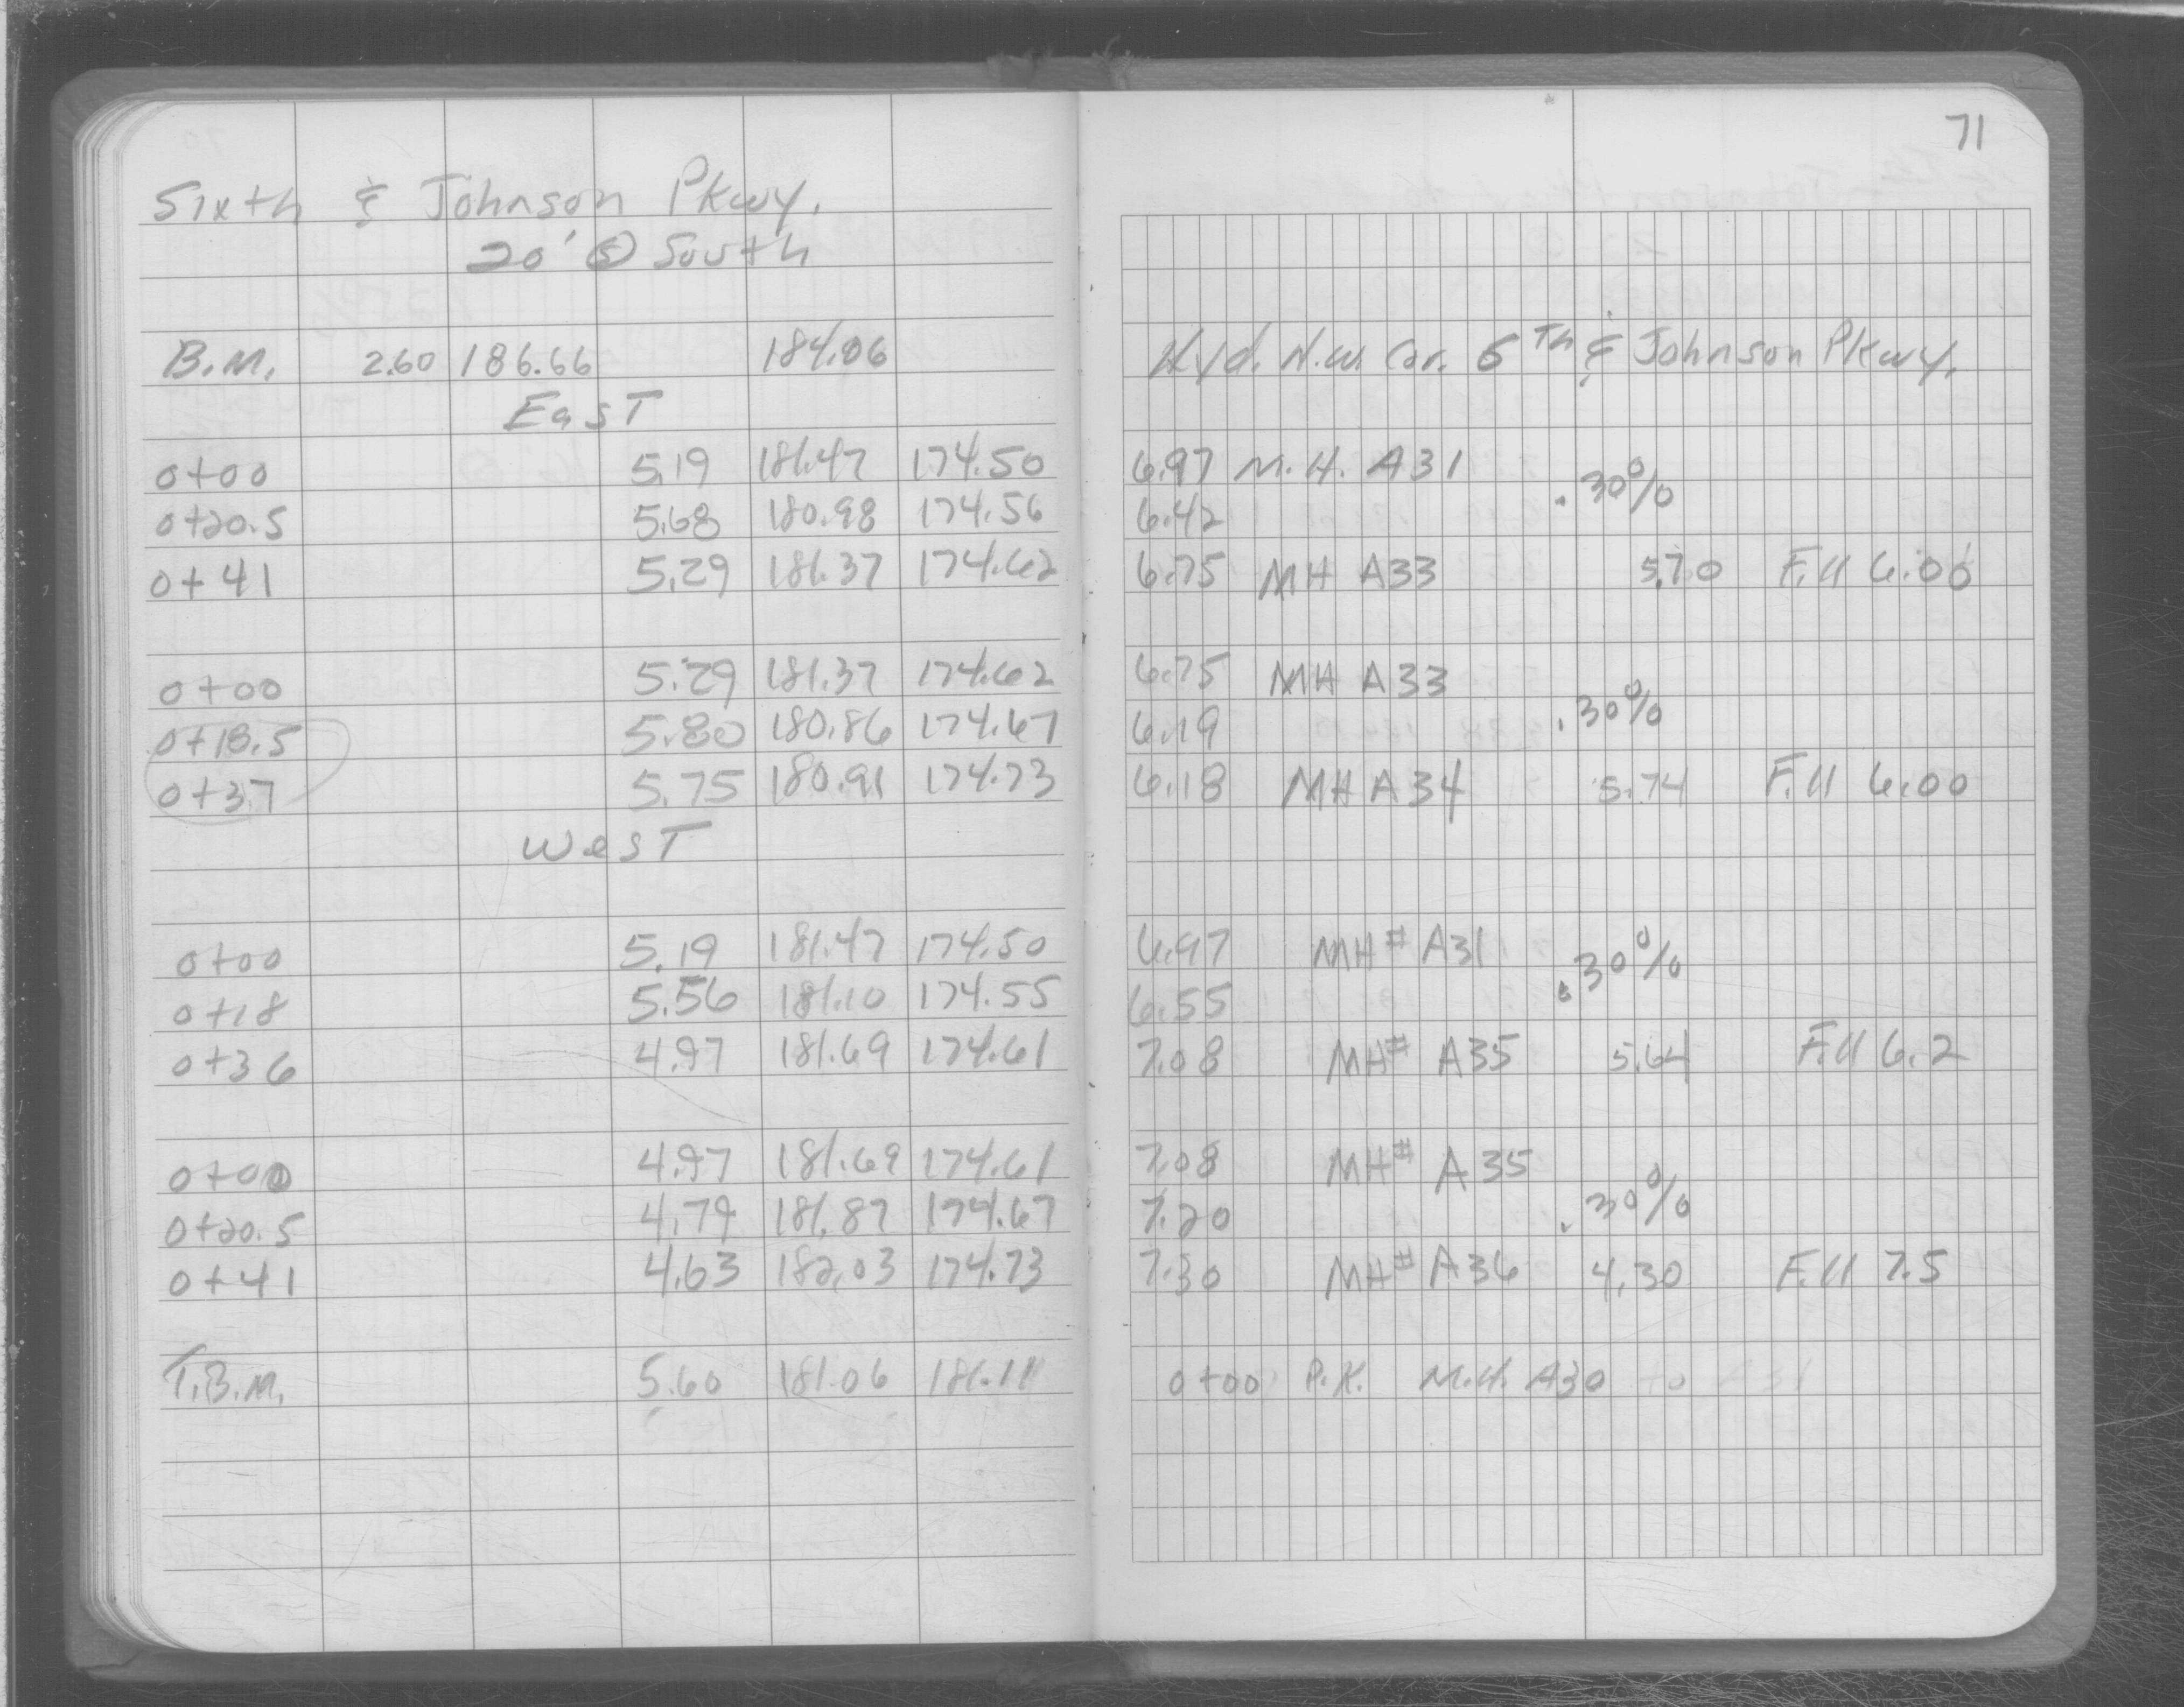 71
Sixth & Johnson Pkwy.
20' @ South
B.M. 2.60 186.66 184.06 Hyd. N.W. Cor. 6Th & Johnson Pkwy.
East
0+00 5.19 181.47 174.50 6.97 M.H. A31
.30%
0+20.5 5.68 180.98 174.56 6.42
0+41 5.29 181.37 174.62 6.75 MH A33 5.70 Fill 6.00
0+00 5.29 181.37 174.62 6.75 MH A33
.30%
0+18.5 5.80 180.86 174.67 6.19
0+37 5.75 180.91 174.73 6.18 MH A34 5.74 Fill 6.00
WesT
0+00 5.19 181.47 174.50 6.97 MH# A31
.30%
0+18 5.56 181.10 174.55 6.55
0+36 4.97 181.69 174.61 7.08 MH# A35 5.64 Fill 6.2
0+00 4.97 181.69 174.61 7.08 MH# A35
.30%
0+20.5 4.79 181.87 174.67 7.20
0+41 4.63 182.03 174.73 7.30 MH# A36 4.30 Fill 7.5
T.B.M. 5.60 181.06 181.11 0+00 P.K. M.H. A30 to A31